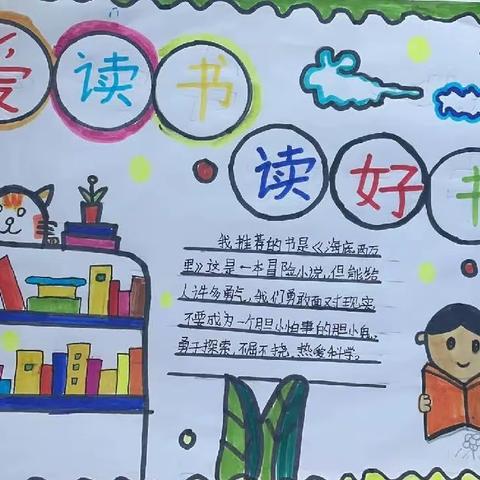 爱读书
读好书
我推荐的书是《海底两万
里》这是一本冒险小说，但能给
人许多勇气，我们勇敢面对现实
不要成为一个胆小怕事的胆小鬼。
勇于探索，不屈不挠，热爱科学。